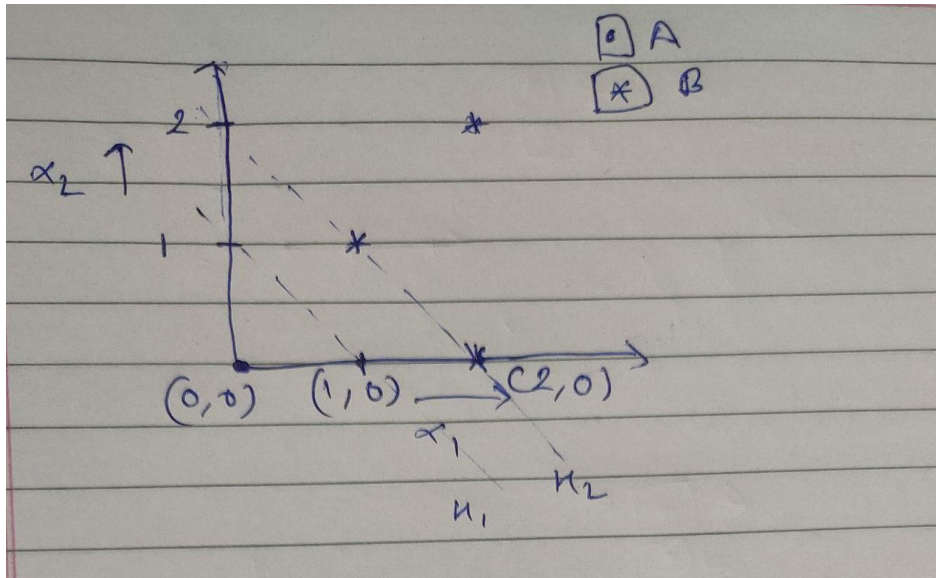 A
* B
2
α₂
1
(0,0) (1,0) (2,0)
α₁
H₂
H₁